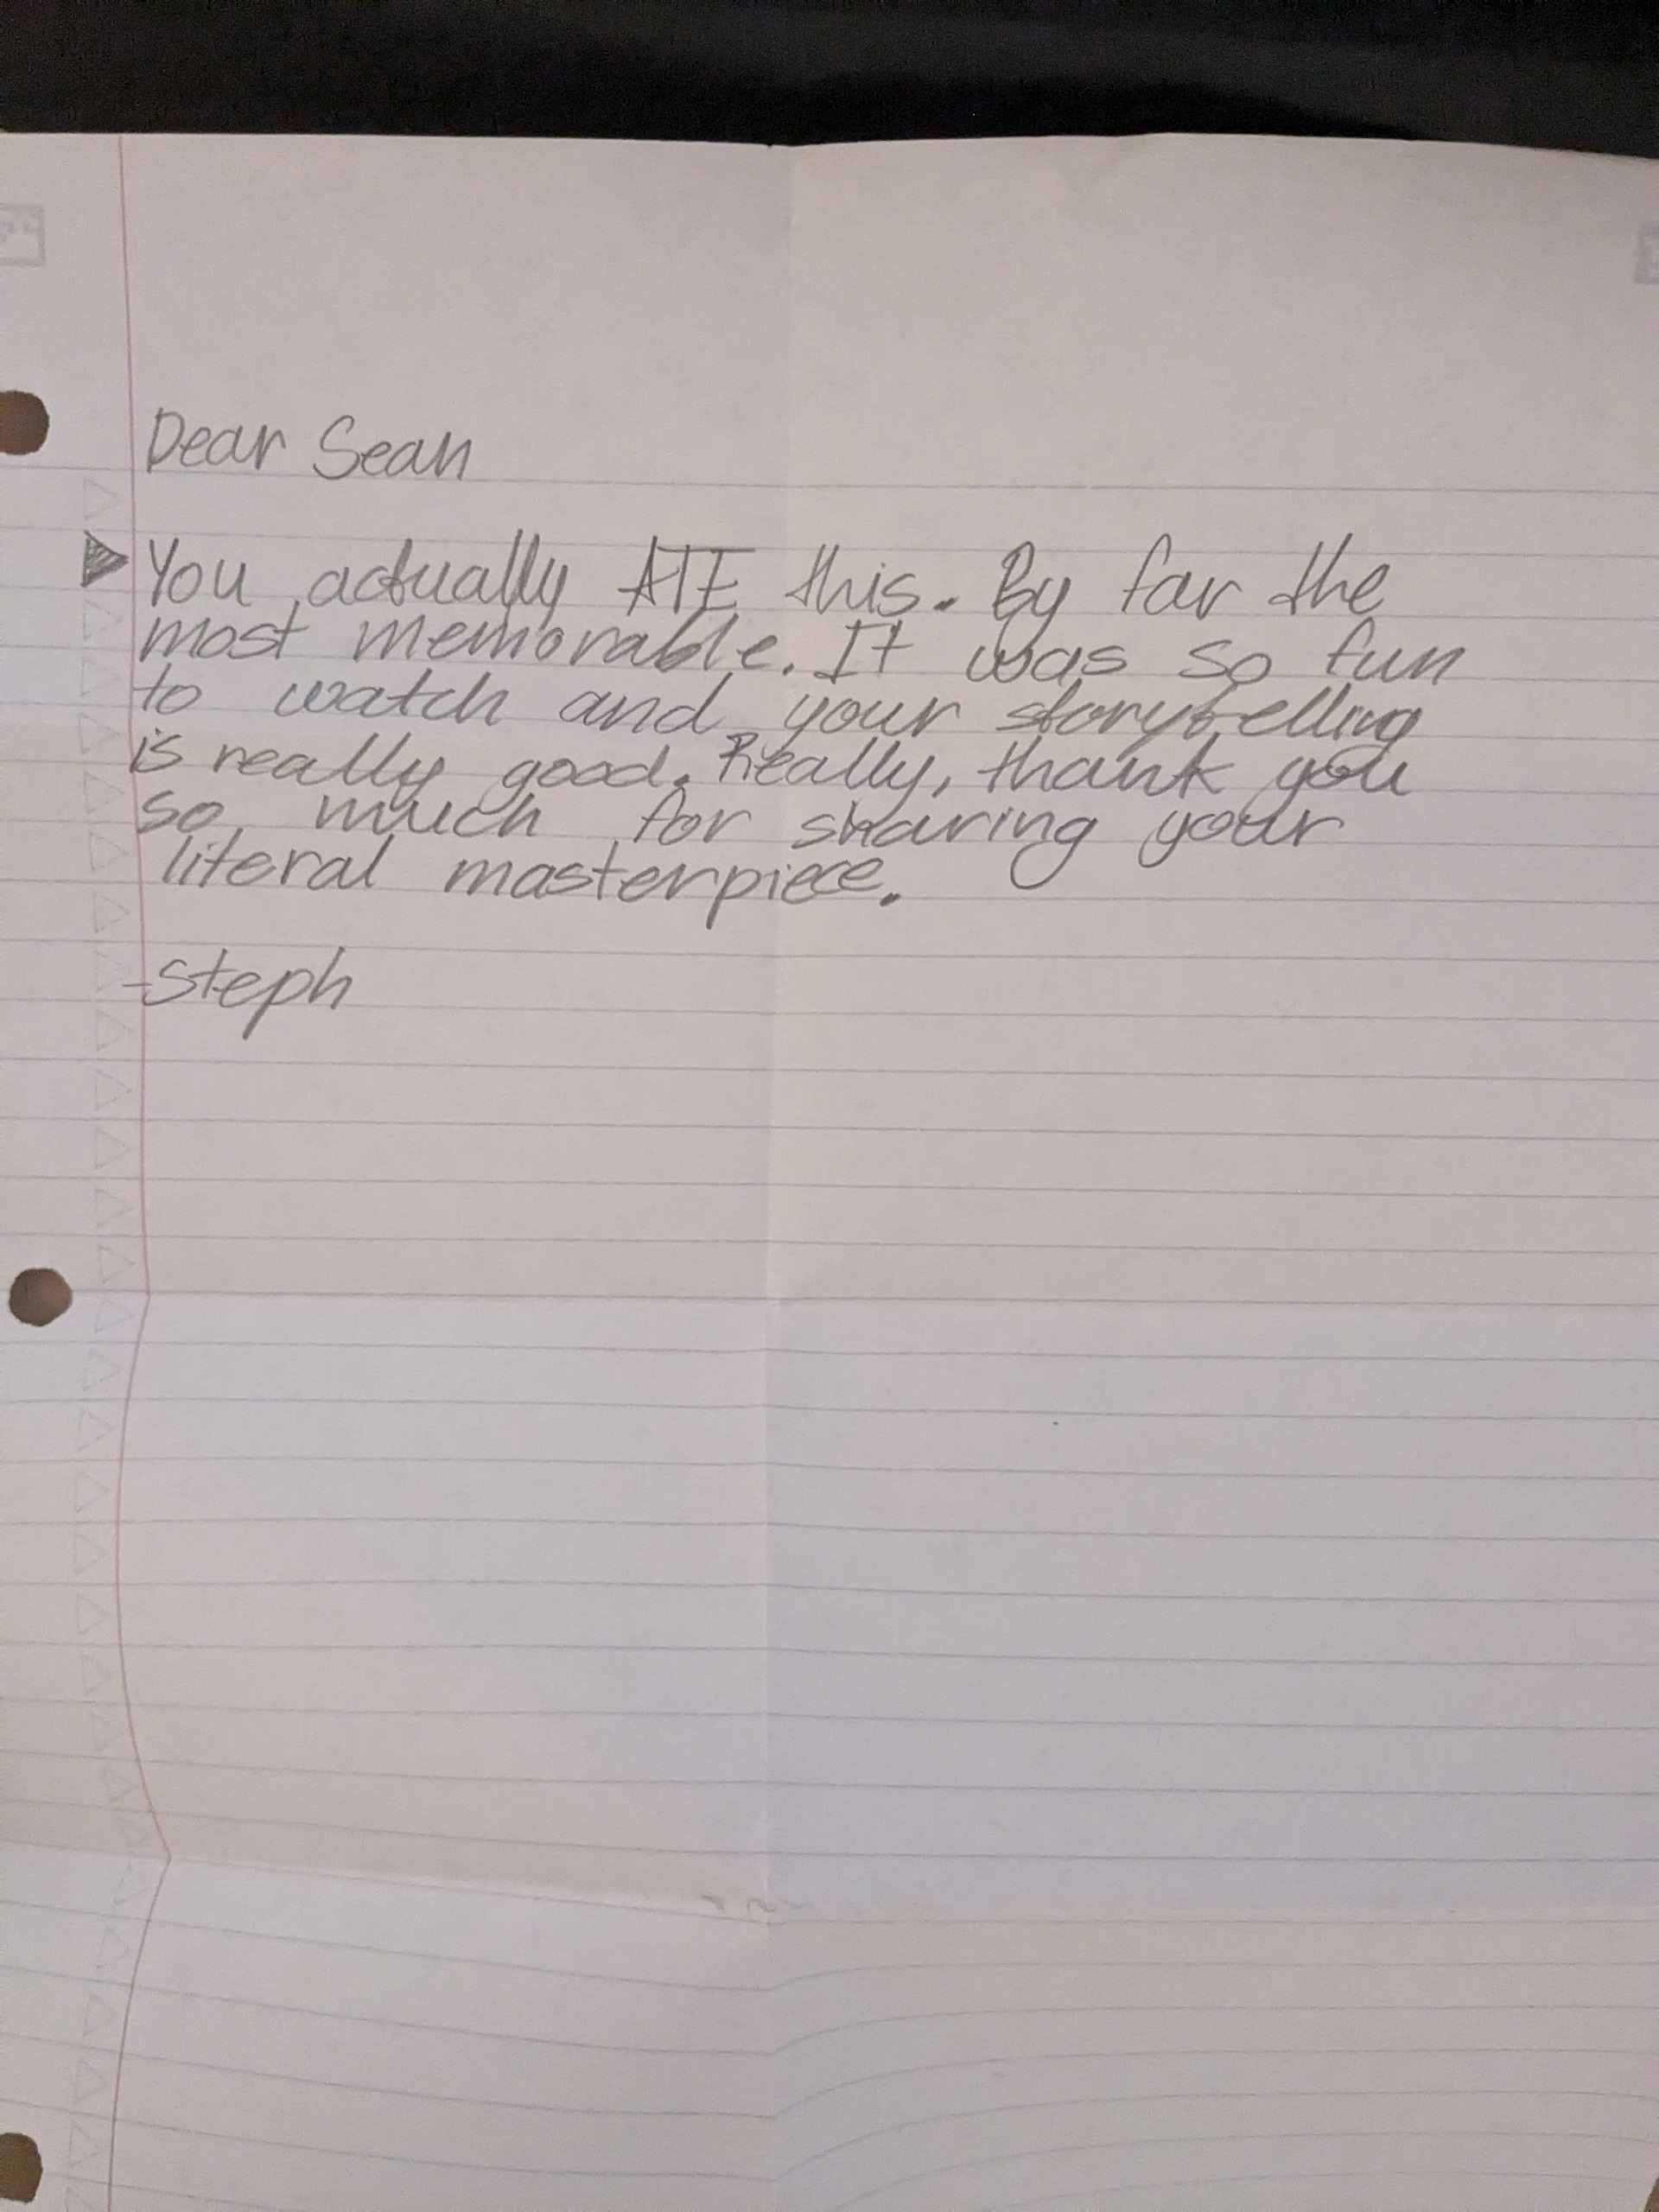 Dear Sean
You actually ATE this. By far the
most memorable. It was so fun
to watch and your storytelling
is really good. Really, thank you
so much for sharing your
literal masterpiece.
-Steph